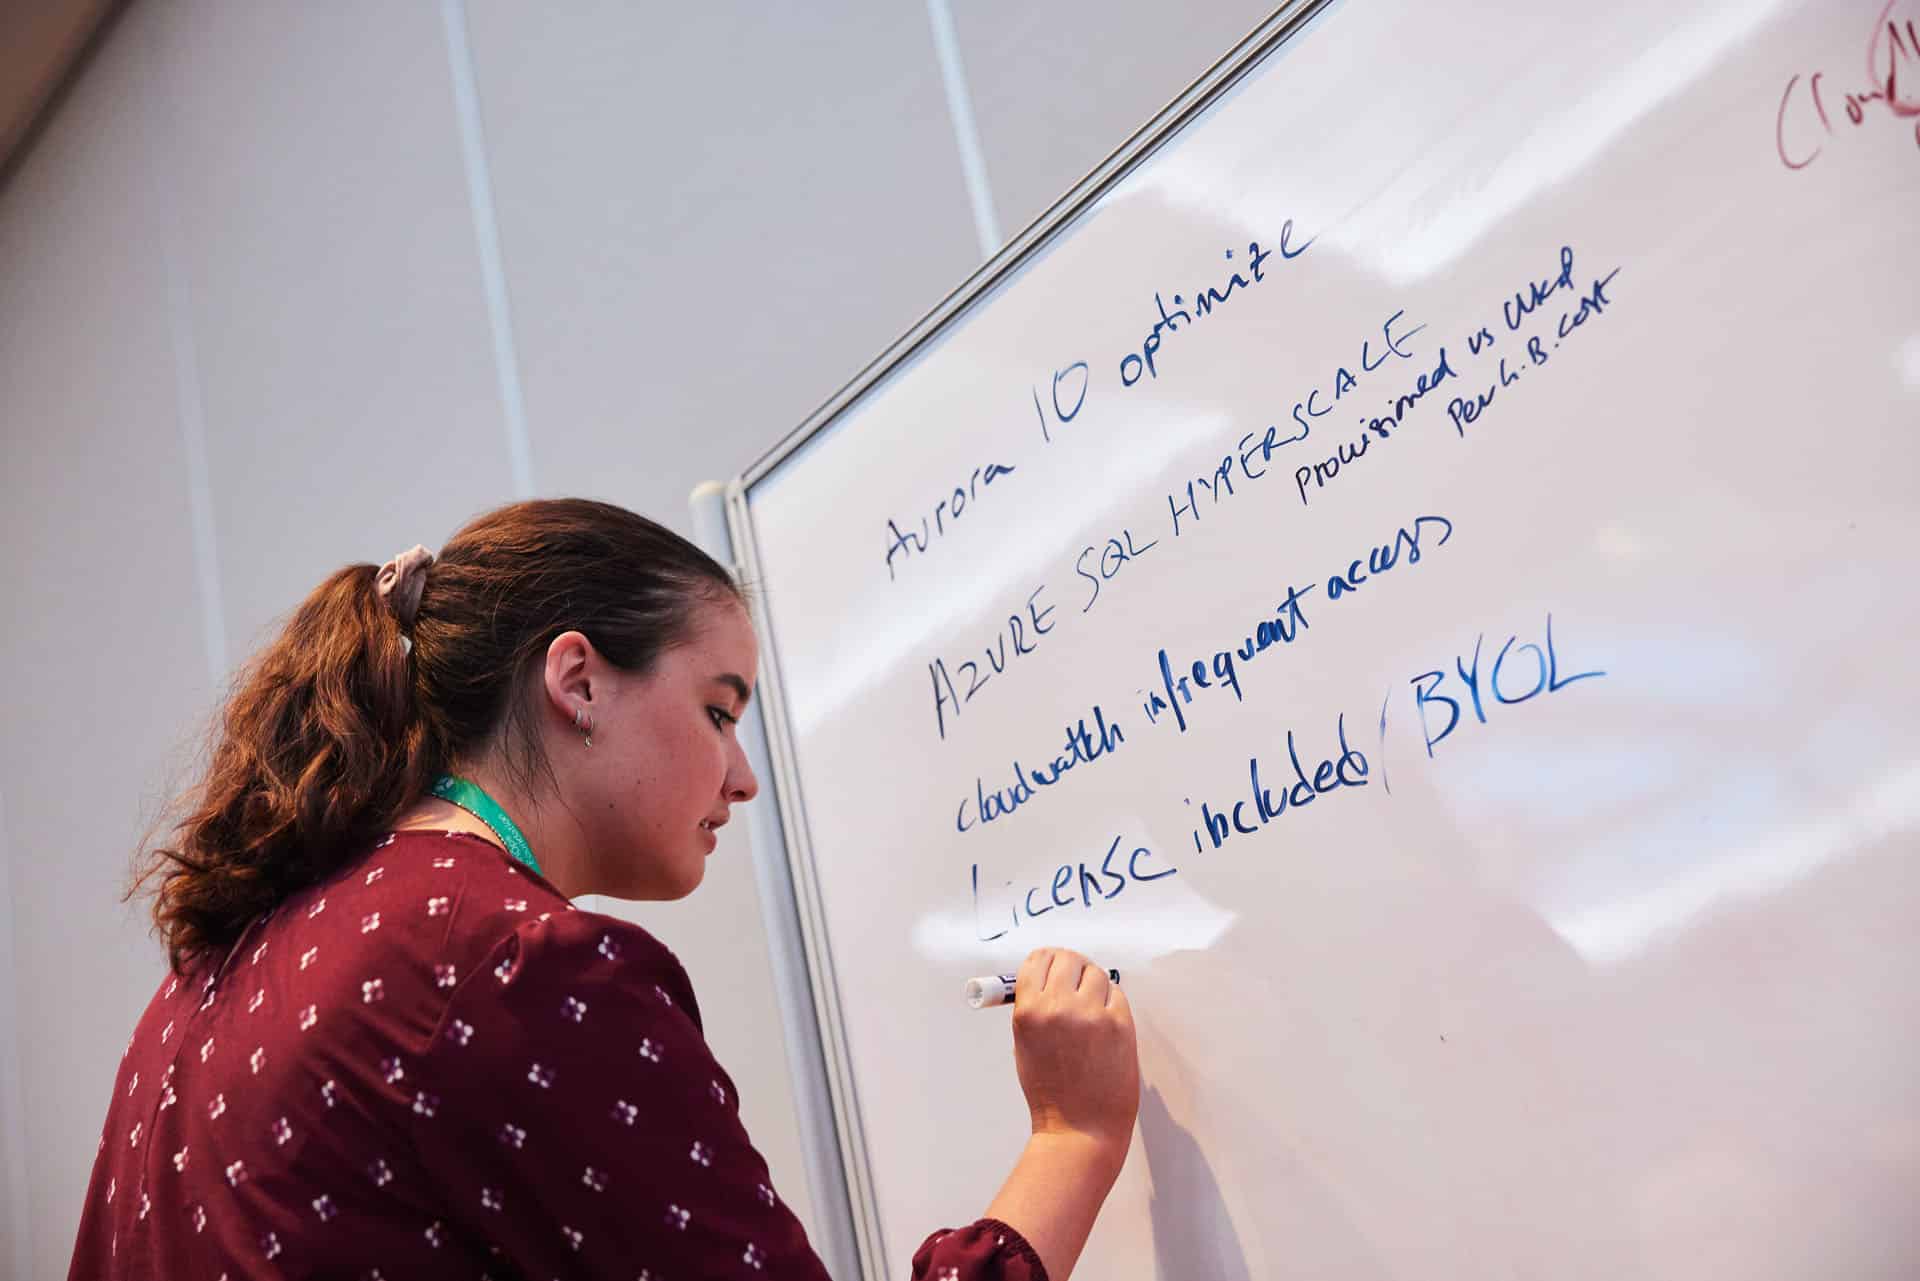 Aurora IO optimize
AZURE SQL HYPERSCALE
provisioned vs used
Per G.B. cost
cloudwatch infrequent access
License included / BYOL
Cloud